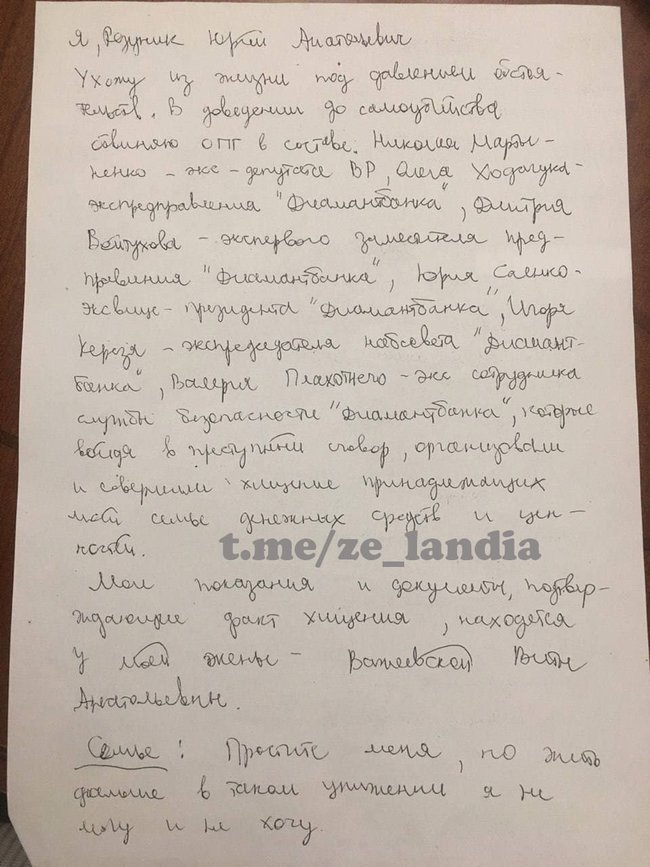 Я, Резуник Юрий Анатолиевич
Ухожу из жизни под давлением обстоя-
тельств. В доведении до самоубийства
обвиняю ОПГ в составе: Николая Марты-
ненко - экс-депутата ВР, Олега Ходачука -
экспредправления "Диамантбанка", Дмитрия
Войтухова - экспервого заместителя пред-
правления "Диамантбанка", Юрия Саенко-
эксвице-президента "Диамантбанка", Игоря
Керезя - экспредседателя набсовета "Диамант-
банка", Валерия Плахотнего - экс сотрудника
службы безопасности "Диамантбанка", которые
войдя в преступный сговор, организовали
и совершили хищение принадлежащих
моей семье денежных средств и цен-
ностей.
t.me/ze_landia
Мои показания и документы, подтвер-
ждающие факт хищения, находятся
у моей жены -
Анатольевны.
Семье! Простите меня, но жить
дальше в таком унижении я не
могу и не хочу.